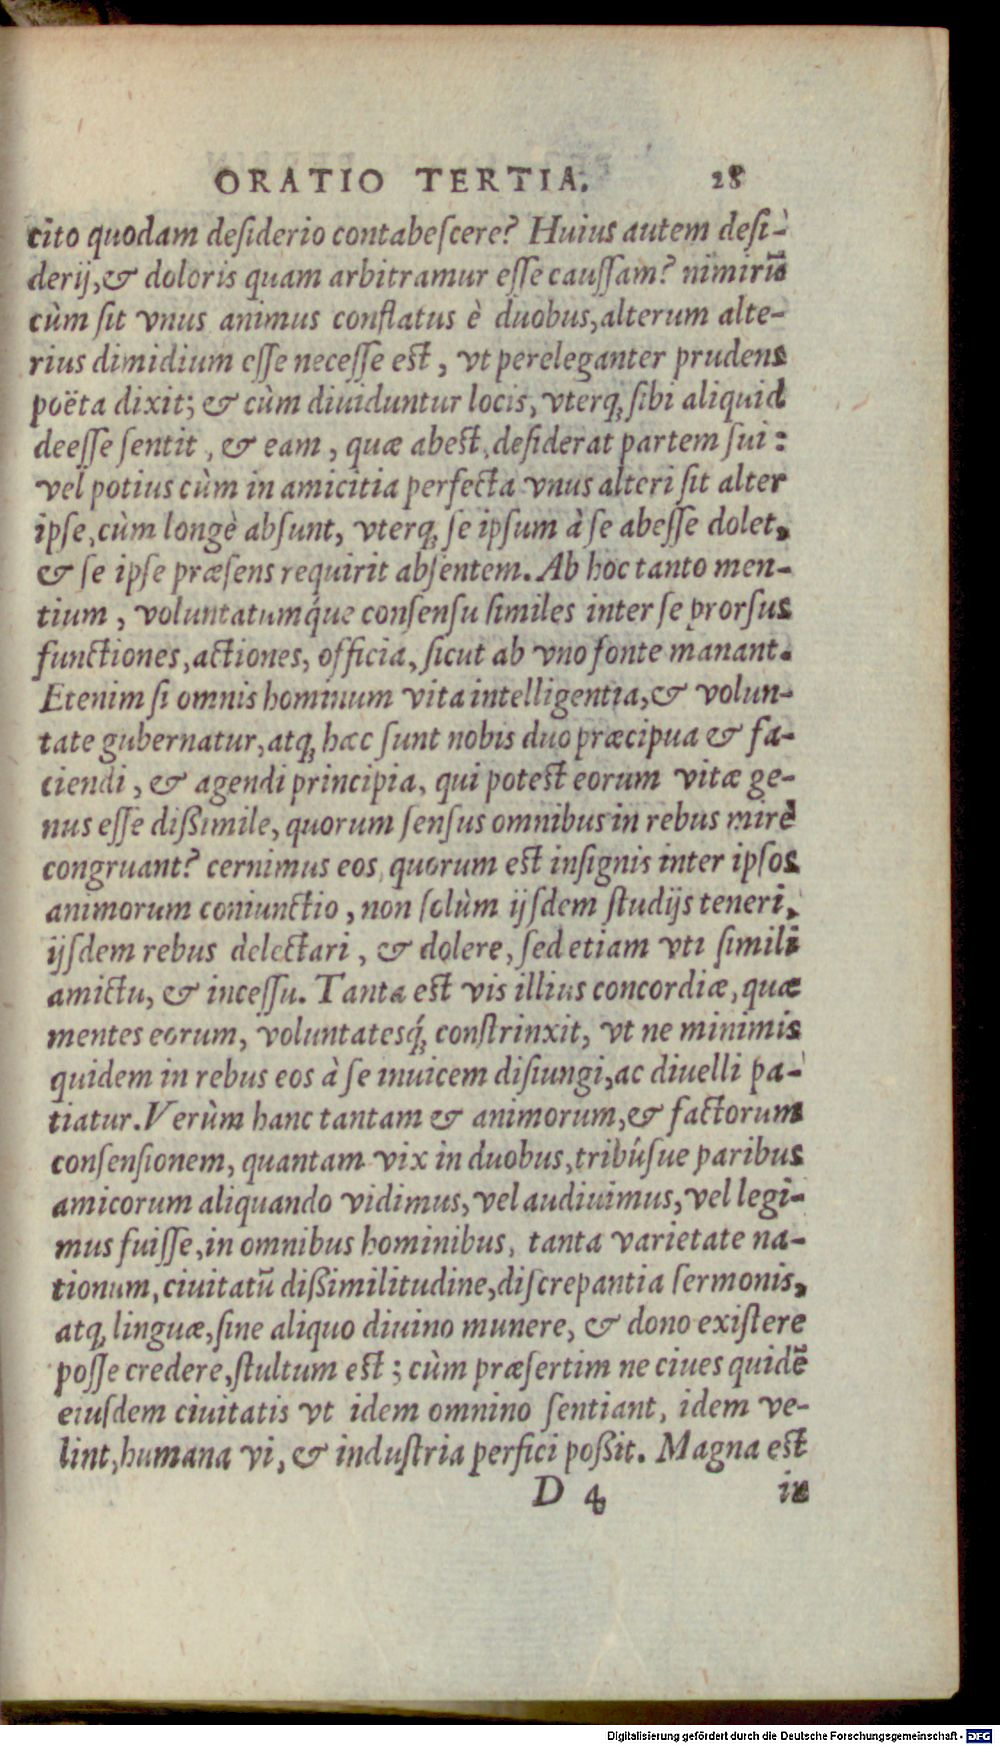 ORATIO TERTIA. 28
cito quodam deſiderio contabeſcere? Huius autem deſi-
derij, & doloris quam arbitramur eſſe cauſſam? nimirū
cùm ſit vnus animus conflatus è duobus, alterum alte-
rius dimidium eſſe neceſſe est, vt pereleganter prudens
poëta dixit; & cùm diuiduntur locis, vterq; ſibi aliquid
deeſſe ſentit, & eam, quæ abest, deſiderat partem ſui:
vel potius cùm in amicitia perfecta vnus alteri ſit alter
ipſe, cùm longè abſunt, vterq; ſe ipſum à ſe abeſſe dolet,
& ſe ipſe præſens requirit abſentem. Ab hoc tanto men-
tium, voluntatumq́ue conſenſu ſimiles inter ſe prorſus
functiones, actiones, officia, ſicut ab vno fonte manant.
Etenim ſi omnis hominum vita intelligentia, & volun-
tate gubernatur, atq; hæc ſunt nobis duo præcipua & fa-
ciendi, & agendi principia, qui potest eorum vitæ ge-
nus eſſe dißimile, quorum ſenſus omnibus in rebus mirè
congruant? cernimus eos, quorum est inſignis inter ipſos
animorum coniunctio, non ſolùm ijſdem ſtudijs teneri,
ijſdem rebus delectari, & dolere, ſed etiam vti ſimili
amictu, & inceſſu. Tanta est vis illius concordiæ, quæ
mentes eorum, voluntatesq́; conſtrinxit, vt ne minimis
quidem in rebus eos à ſe inuicem diſiungi, ac diuelli pa-
tiatur. Verùm hanc tantam & animorum, & factorum
conſenſionem, quantam vix in duobus, tribúſue paribus
amicorum aliquando vidimus, vel audiuimus, vel legi-
mus fuiſſe, in omnibus hominibus, tanta varietate na-
tionum, ciuitatū dißimilitudine, diſcrepantia ſermonis,
atq; linguæ, ſine aliquo diuino munere, & dono exiſtere
poſſe credere, ſtultum est; cùm præſertim ne ciues quidē
eiuſdem ciuitatis vt idem omnino ſentiant, idem ve-
lint, humana vi, & induſtria perfici poßit. Magna est
D 4 in
Digitalisierung gefördert durch die Deutsche Forschungsgemeinschaft - DFG